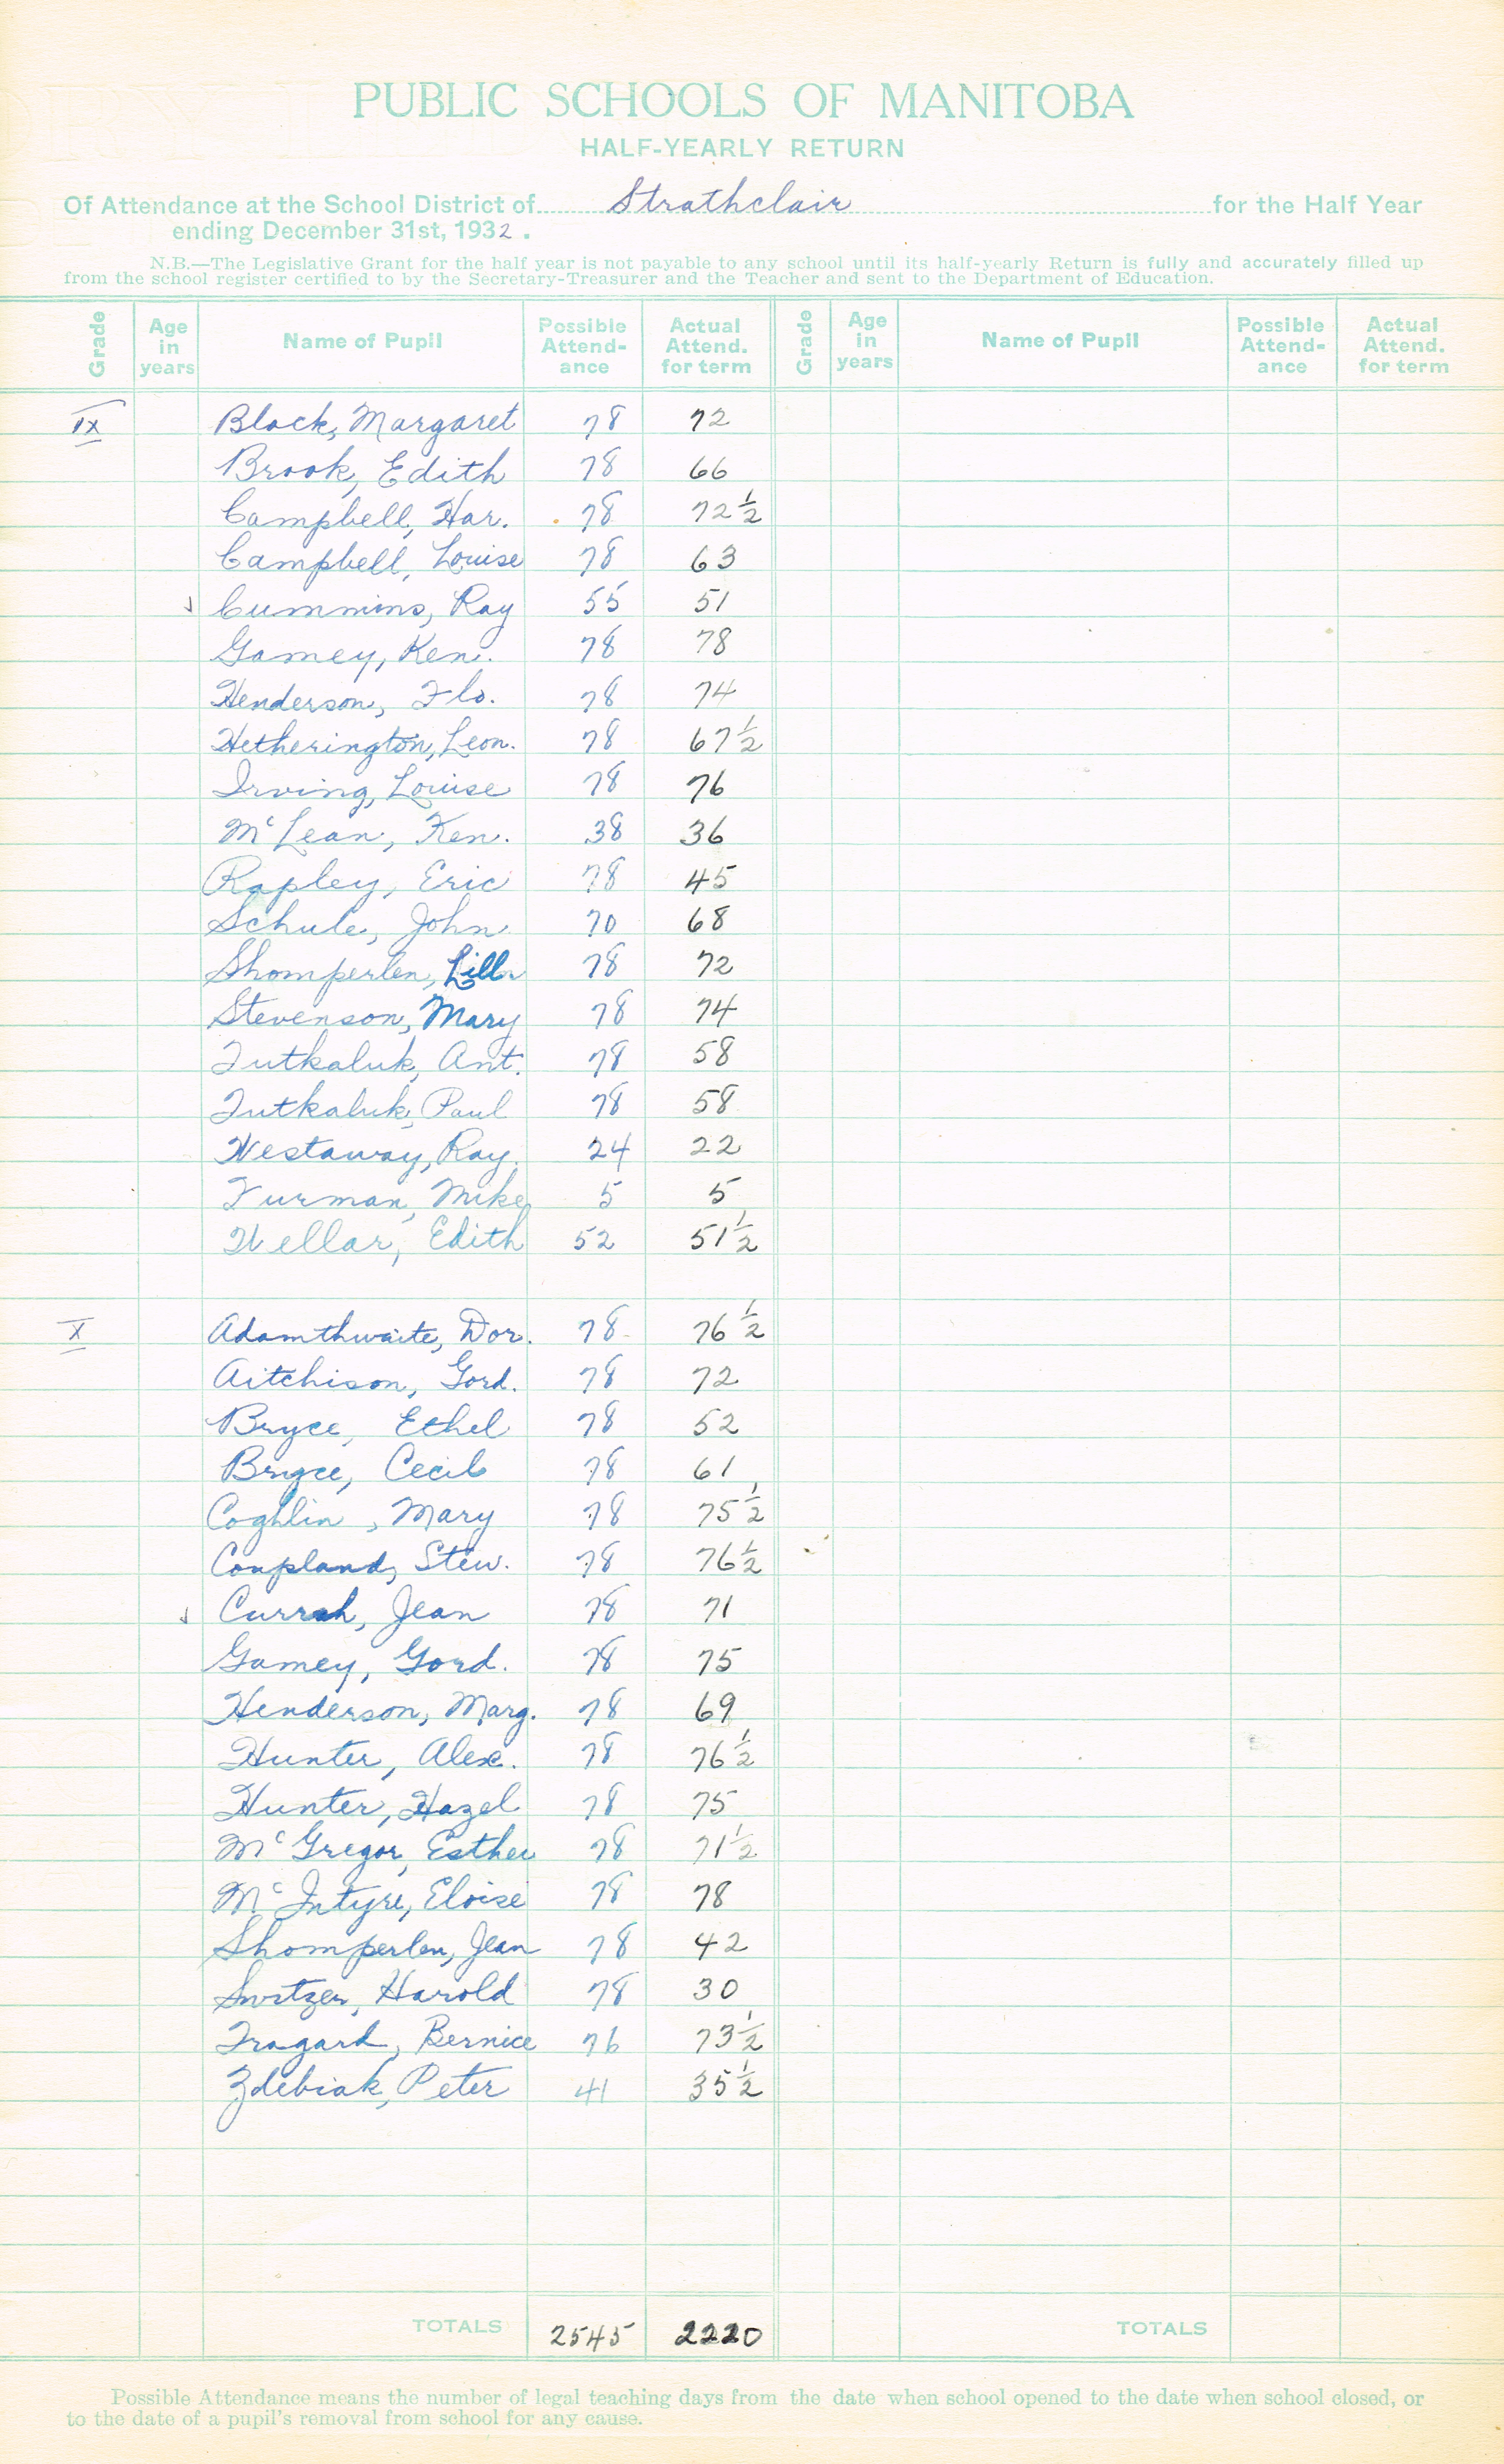 PUBLIC SCHOOLS OF MANITOBA
HALF-YEARLY RETURN
Of Attendance at the School District of Strathclair for the Half Year
ending December 31st, 1932.
N.B.—The Legislative Grant for the half year is not payable to any school until its half-yearly Return is fully and accurately filled up
from the school register certified to by the Secretary-Treasurer and the Teacher and sent to the Department of Education.
Grade Age in years Name of Pupil Possible Attend-ance Actual Attend. for term Grade Age in years Name of Pupil Possible Attend-ance Actual Attend. for term
IX Block, Margaret 78 72
Brook, Edith 78 66
Campbell, Har. 78 72 1/2
Campbell, Louise 78 63
Cummins, Ray 55 51
Gamey, Ken. 78 78
Henderson, Flo. 78 74
Hetherington, Leon. 78 67 1/2
Irving, Louise 78 76
McLean, Ken. 38 36
Rapley, Eric 78 45
Schule, John 70 68
Shomperlen, Lill 78 72
Stevenson, Mary 78 74
Tutkaluk, Ant. 78 58
Tutkaluk, Paul 78 58
Westaway, Ray. 24 22
Furman, Mike 5 5
Wellar, Edith 52 51 1/2
X Adamthwaite, Dor. 78 76 1/2
Aitchison, Gord. 78 72
Bryce, Ethel 78 52
Bryce, Cecil 78 61
Coghlin, Mary 78 75 1/2
Coupland, Stew. 78 76 1/2
Currah, Jean 78 71
Gamey, Gord. 78 75
Henderson, Marg. 78 69
Hunter, Alex. 78 76 1/2
Hunter, Hazel 78 75
McGregor, Esther 78 71 1/2
McIntyre, Eloise 78 78
Shomperlen, Jean 78 42
Switzer, Harold 78 30
Tragard, Bernice 76 73 1/2
Zdebiak, Peter 41 35 1/2
TOTALS 2545 2220 TOTALS
Possible Attendance means the number of legal teaching days from the date when school opened to the date when school closed, or
to the date of a pupil's removal from school for any cause.